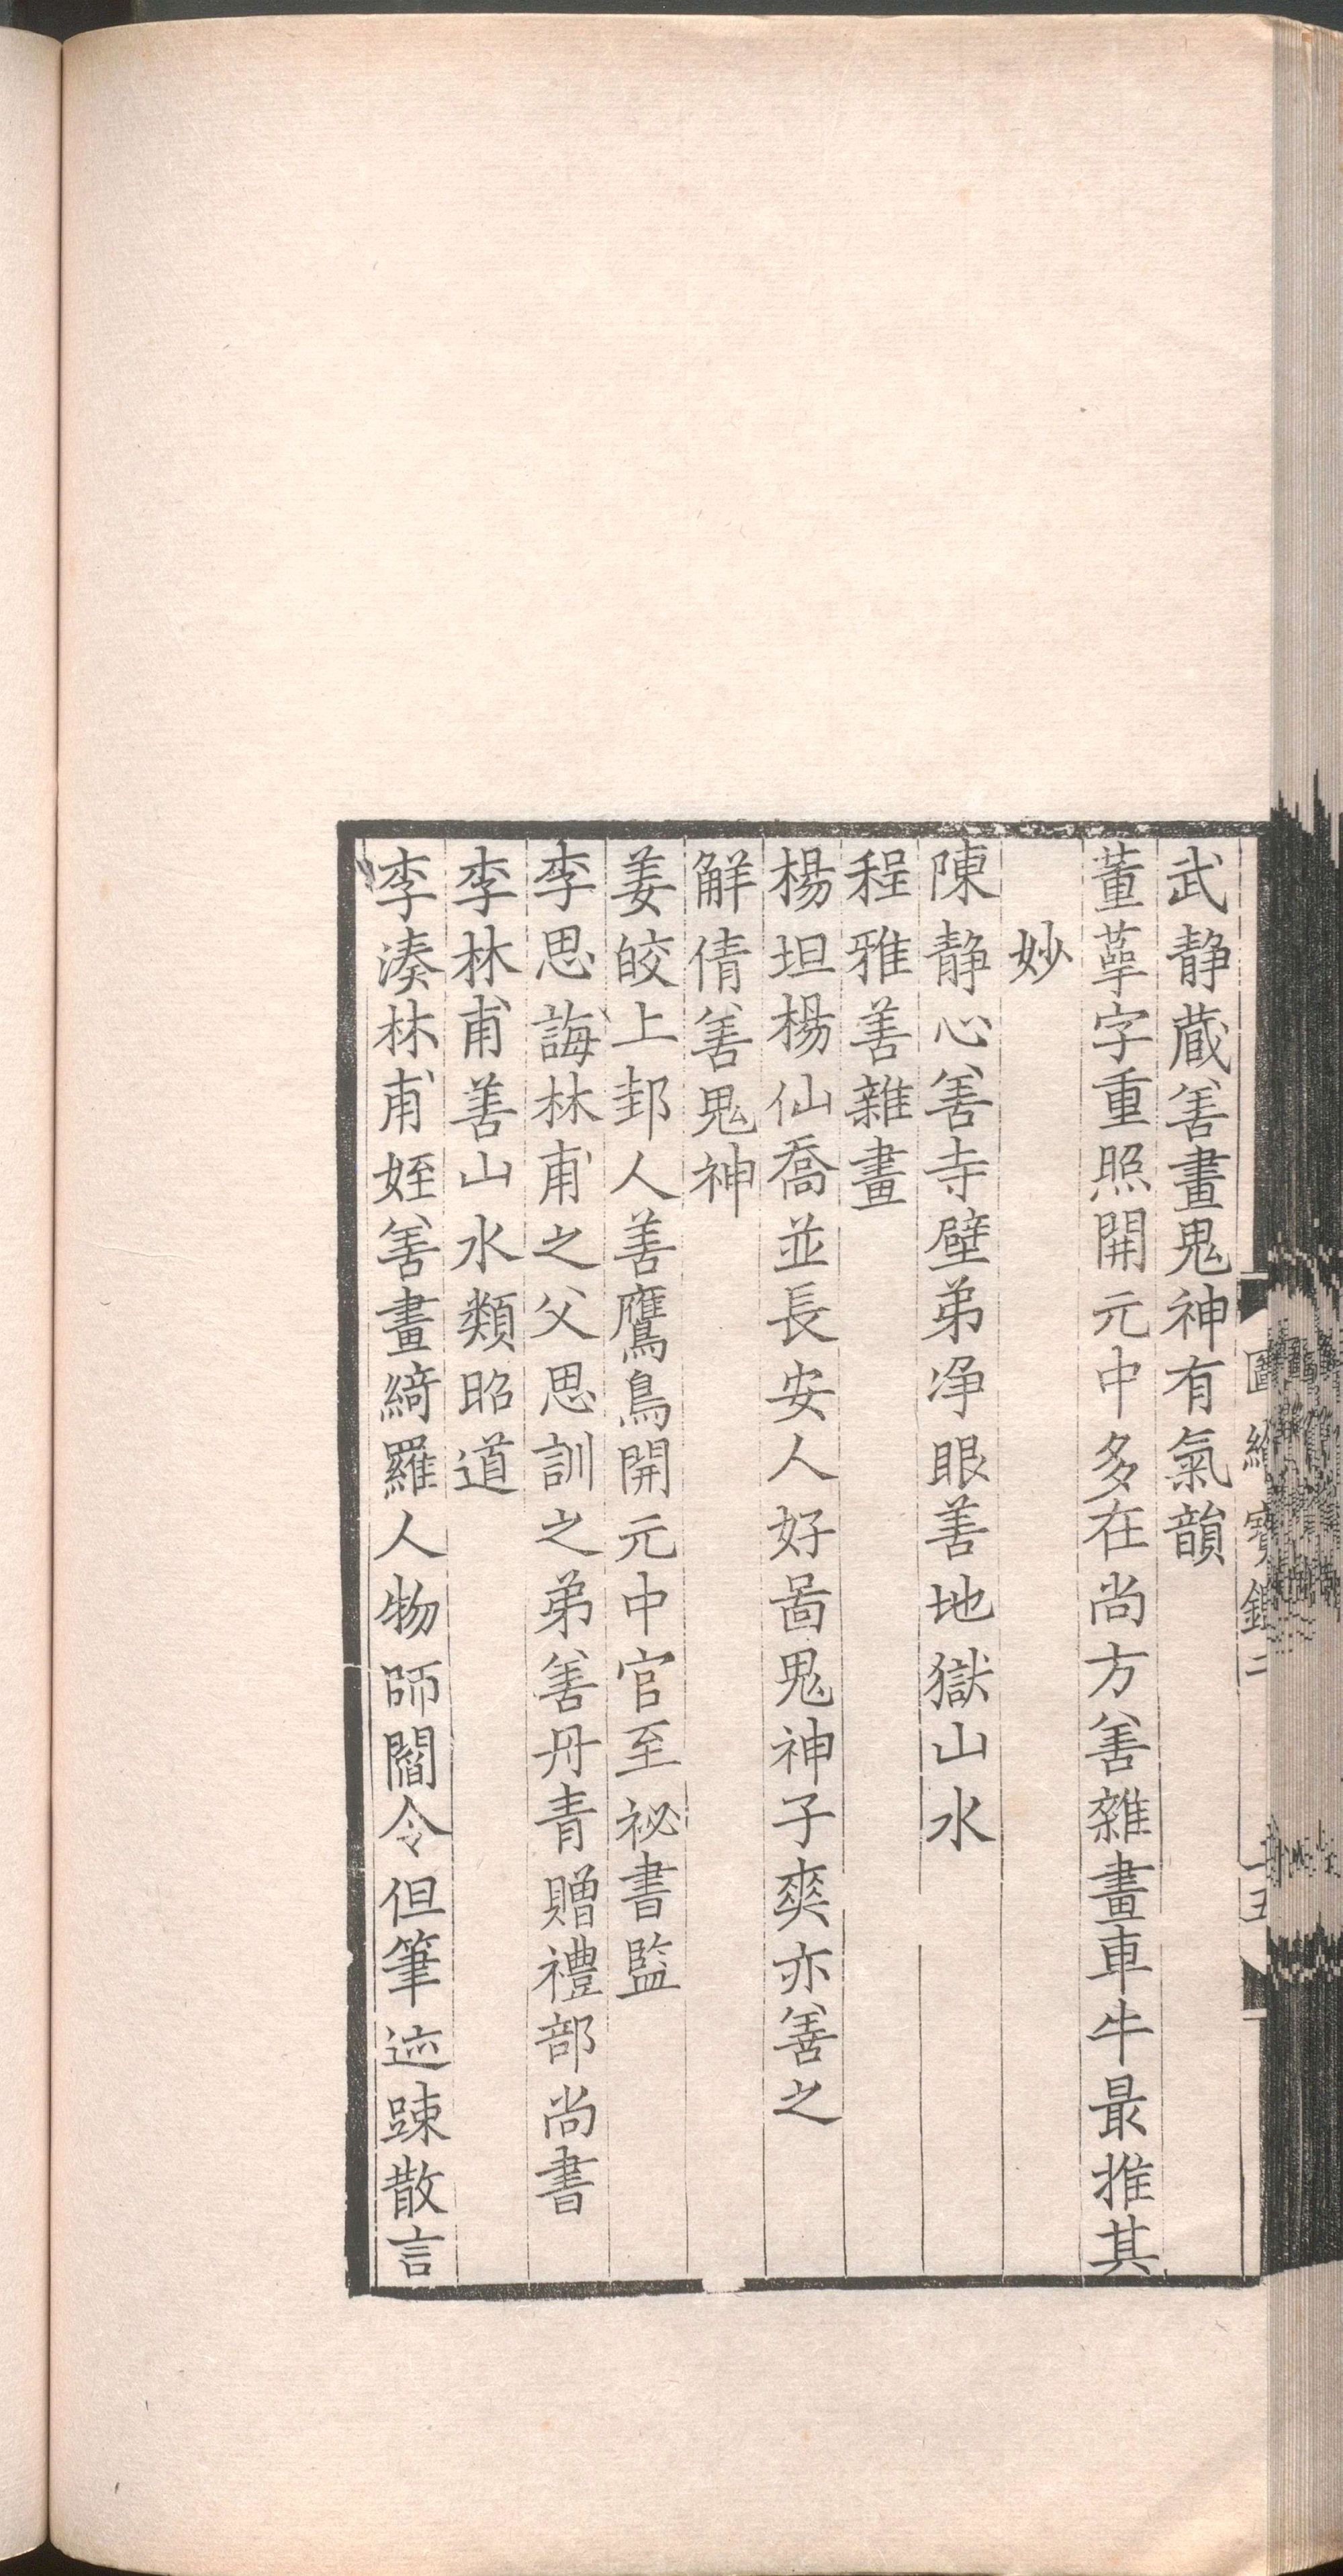 武靜藏善畫鬼神有氣韻
董䓬字重照開元中多在尚方善雜畫車牛最推其
妙
陳靜心善寺壁弟净眼善地獄山水
程雅善雜畫
楊坦楊仙喬並長安人好啚鬼神子爽亦善之
觧倩善鬼神
姜皎上邽人善鷹鳥開元中官至祕書監
李思誨林甫之父思訓之弟善丹青贈禮部尚書
李林甫善山水類昭道
李湊林甫姪善畫綺羅人物師閻令但筆迹踈散言
圖繪寶鑑二